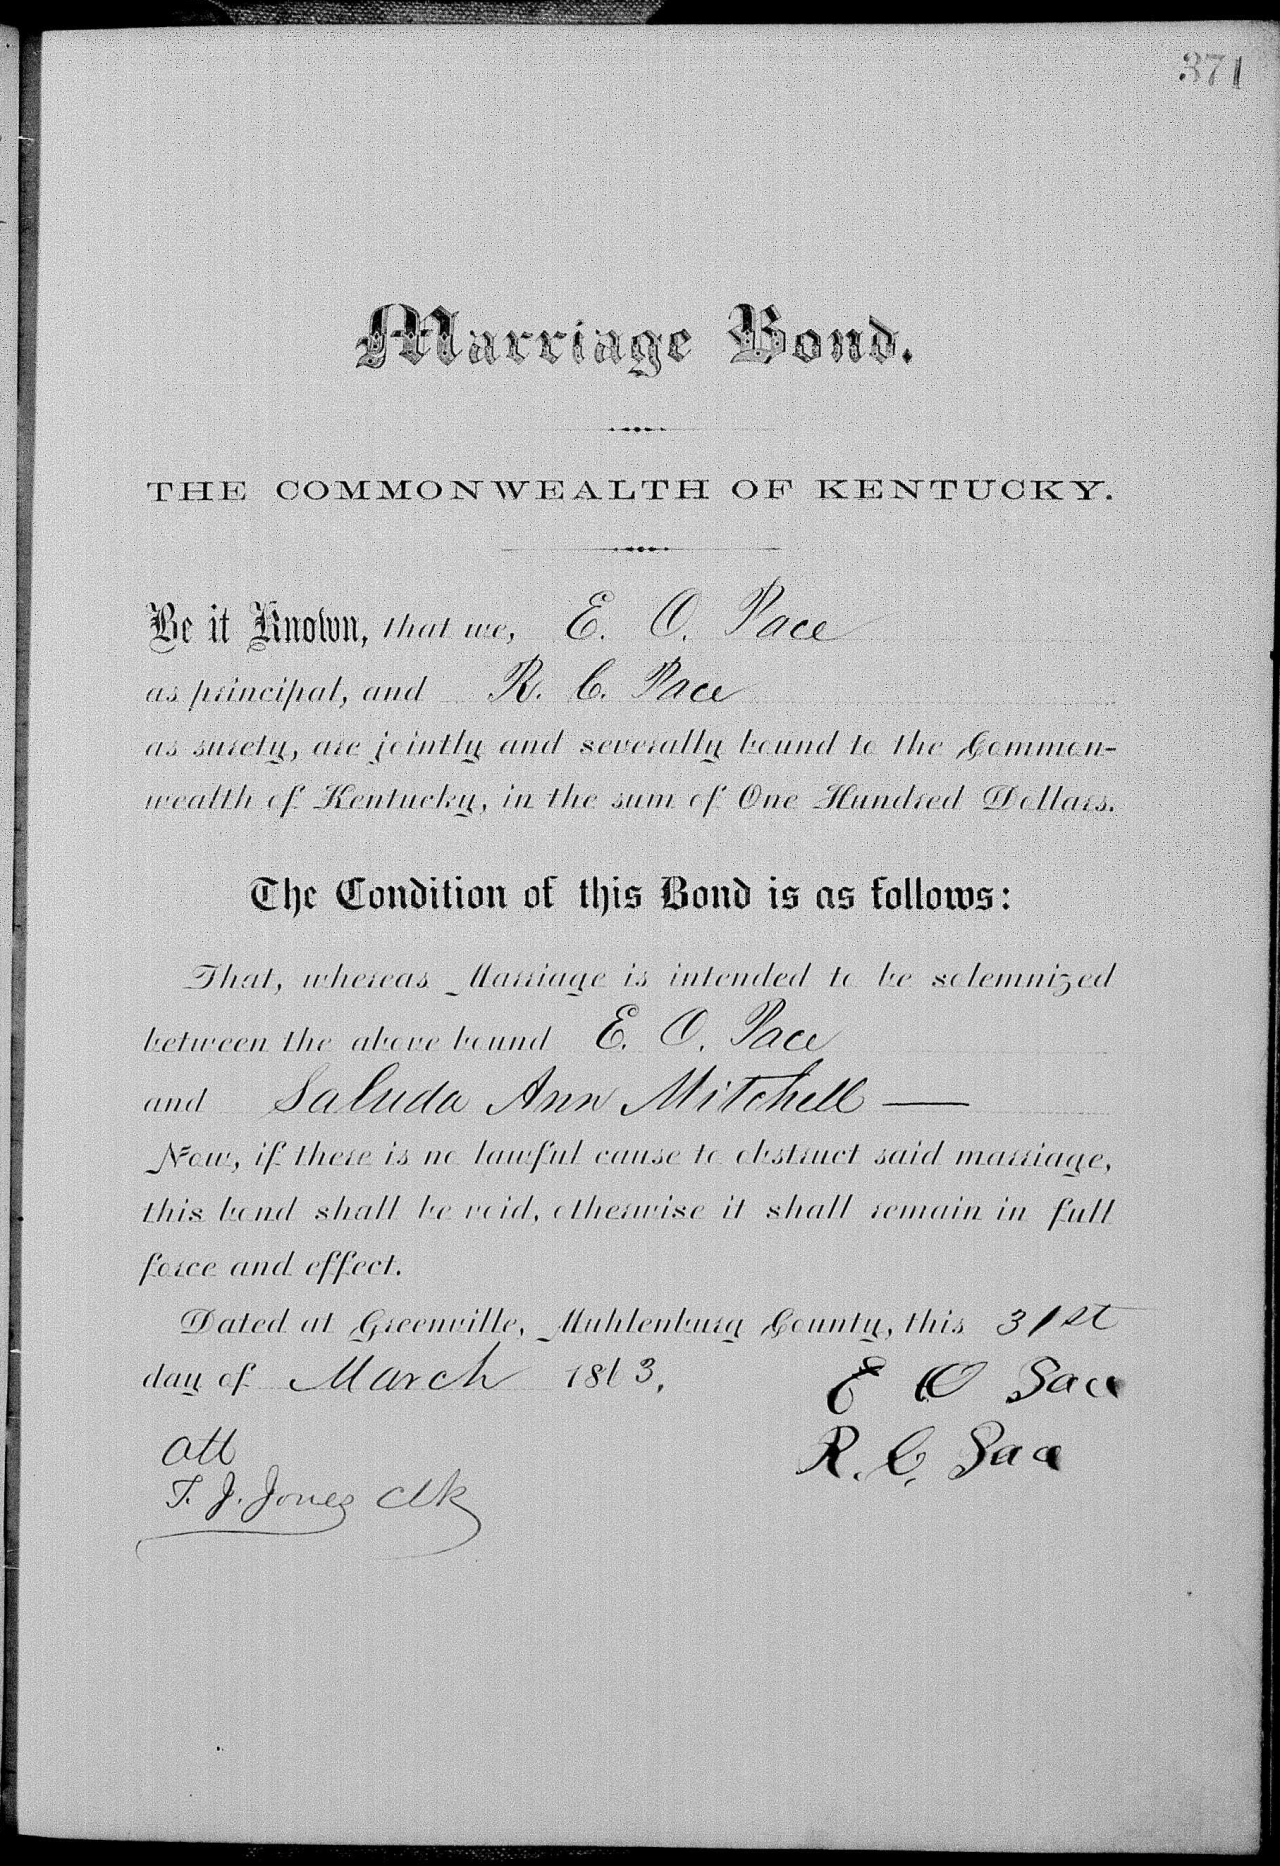 371
Marriage Bond.
THE COMMONWEALTH OF KENTUCKY.
Be it Known, that we, E. O. Pace
as principal, and R. C. Pace
as surety, are jointly and severally bound to the Common-
wealth of Kentucky, in the sum of One Hundred Dollars.
The Condition of this Bond is as follows:
That, whereas Marriage is intended to be solemnized
between the above bound E. O. Pace
and Saluda Ann Mitchell —
Now, if there is no lawful cause to obstruct said marriage,
this bond shall be void, otherwise it shall remain in full
force and effect.
Dated at Greenville, Muhlenburg County, this 31st
day of March 1863.
E O Pace
Att
R. C. Pace
T. J. Jones Clk